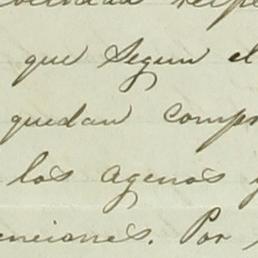 que Segun el
quedan compr
los agenos y
enciones. Por